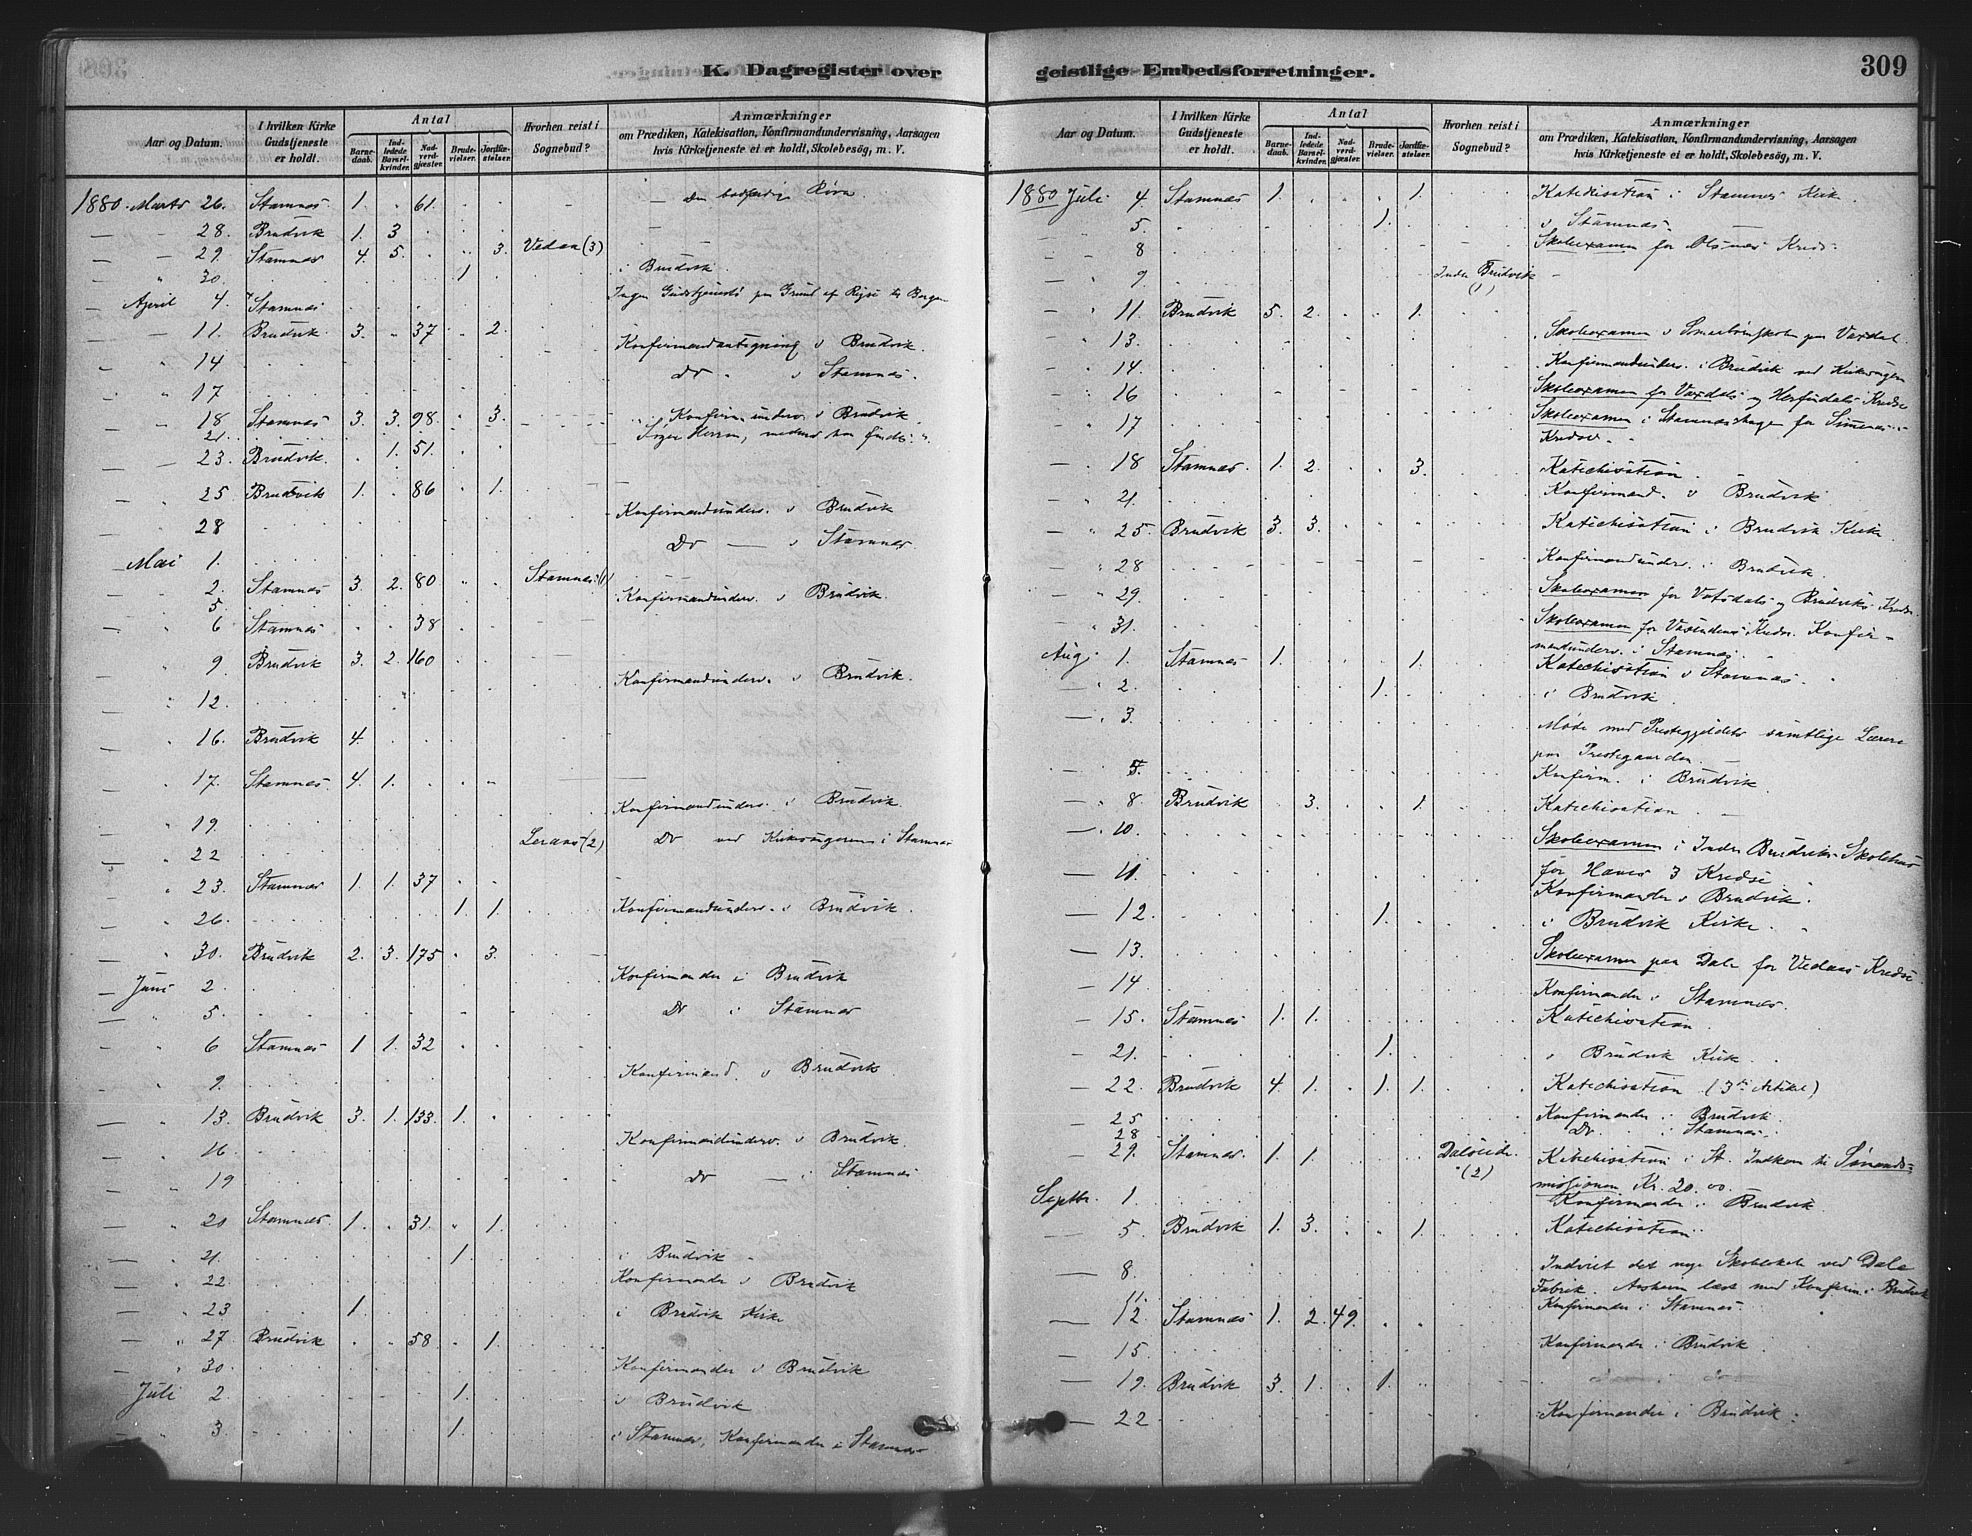 K. Dagregister over geistlige Embedsforretninger.
309
Aar og Datum. I hvilken Kirke Gudstjeneste er holdt. Antal Barnedaab. Indledede Barselkvinder. Nadverdgjæster. Brudevielser. Jordfæstelser. Hvorhen reist i Sognebud? Anmærkninger om Prædiken, Katekisation, Konfirmandundervisning, Aarsagen hvis Kirketjeneste ei er holdt, Skolebesög, m. V.
1880 Marts 26. Stamnæs 1. " 61. Den bodfærdig Røver
— 28. Brudvik 1. 3
— 29. Stamnæs 4. 5. 3. Vedaa (3)
" 30. 1 i Brudvik
April 4. Stamnæs Ingen Gudstjeneste paa Grund af Rejse til Bergen
— 11. Brudvik 3. " 37. 2. Konfirmand i Brudvik.
" 14 Do " i Stamnæs.
" 17.
" 18 Stamnæs 3. 3. 98. 3. Konfirm.underv. i Brudvik
21. Herren,
— 23. Brudvik. 1. 51.
" 25 Brudvik 1. " 86 1.
" 28 Konfirmandunderv. i Brudvik
Mai 1. Do — i Stamnæs.
" 2. Stamnæs 3. 2. 80 Stamnæs (1)
5. Konfirmandunderv. i Brudvik.
" 6 Stamnæs 38
" 9. Brudvik 3. 2. 160
" 12. Konfirmandunderv. i Brudvik.
" 16. Brudvik 4.
" 17. Stamnæs. 4. 1.
" 19. Konfirmandunderv. i Brudvik.
" 22 (2) Do ved Kirkesangeren i Stamnæs
" 23. Stamnæs 1. 1. 37
" 26. 1. 1. Konfirmandunderv. i Brudvik.
" 30. Brudvik 2. 3. 175 3.
Juni 2. Konfirmander i Brudvik
" 5. Do i Stamnæs
" 6 Stamnæs 1 1. 32
" 9. Konfirmand. i Brudvik
" 13. Brudvik 3. 1. 133. 1.
" 16. Konfirmandunderv. i Brudvik
" 19 Do — i Stamnæs
" 20 Stamnæs. 1. 31. " 1.
" 21. 1. i Brudvik
" 22. Konfirmander i Brudvik
" 23 1. i Brudvik Kirke
" 27 Brudvik 58 1.
" 30. Konfirmander i Brudvik
Juli 2. 1. i Brudvik
" 3. 1. i Stamnæs, Konfirmander i Stamnæs
Aar og Datum. I hvilken Kirke Gudstjeneste er holdt. Antal Barnedaab. Indledede Barselkvinder. Nadverdgjæster. Brudevielser. Jordfæstelser. Hvorhen reist i Sognebud? Anmærkninger om Prædiken, Katekisation, Konfirmandundervisning, Aarsagen hvis Kirketjeneste ei er holdt, Skolebesög, m. V.
1880 Juli 4 Stamnæs 1. 1. Katekisation i Stamnes Kirk
5. 1. i Stamnæs.
" 8 Skoleexamen for Kreds
" 9 Indre Brudvik (1)
" 11. Brudvik 5. 2. 1.
" 13. Skoleexamen i paa Vaxdal.
" 14. Konfirmandunderv. i Brudvik ved Kirkesangeren
" 16 Skoleexamen for Vaxdals og Herfindals Kredse
" 17. Skoleexamen i Stamnæshagen for
Kredse.
" 18 Stamnæs. 1. 2. 3. Katechisation.
" 21. Konfirmand. i Brudvik
" 25. Brudvik 3. 3. Katechisation i Brudvik Kirke
" 28 Konfirmandunderv. i Brudvik.
" 29. Skoleexamen for og Brudviks Kredse.
" 31. Skoleexamen for Kredse. Konfirmandunderv. i Stamnæs.
Aug. 1. Stamnæs 1. 1. Katechisation i Stamnæs.
" 2. 1. i Brudvik.
" 3. Møde med Prestegjeldets samtlige Lærere
paa Prestegaarden.
5. Konfirm. i Brudvik
" 8. Brudvik 3. 1. Katechisation
" 10. Skoleexamen i Indre Brudviks Skolehus
11. for 3 Kredse
— 12. 1. Konfirmander i Brudvik.
i Brudvik Kirke.
— 13. Skoleexamen paa Dale for Vedaas Kredse
— 14 Konfirmander i Stamnæs.
— 15. Stamnæs 1. 1. Katechisation
— 21. 1. i Brudvik Kirk
— 22. Brudvik 4. 1. 1. 1. Katechisation (3die Artikel)
— 25 Konfirmander i Brudvik.
28 Do i Stamnæs.
— 29. Stamnæs. 1. 1. (2) Katechisation i St. Indkom til Sømandsmissionen Kr. 20.00.
Septbr. 1. Konfirmander i Brudvik
5. Brudvik 1. 3. 1. Katechisation.
— 8. Indviet det nye Skolelokale ved Dale
Fabrik. læst med Konfirm. i Brudvik
11. Konfirmander i Stamnæs
— 12 Stamnæs 1. 2. 49.
— 15 Konfirmander i Brudvik
— 19. Brudvik 3. 1. 1.
— 22 Konfirmander i Brudvik